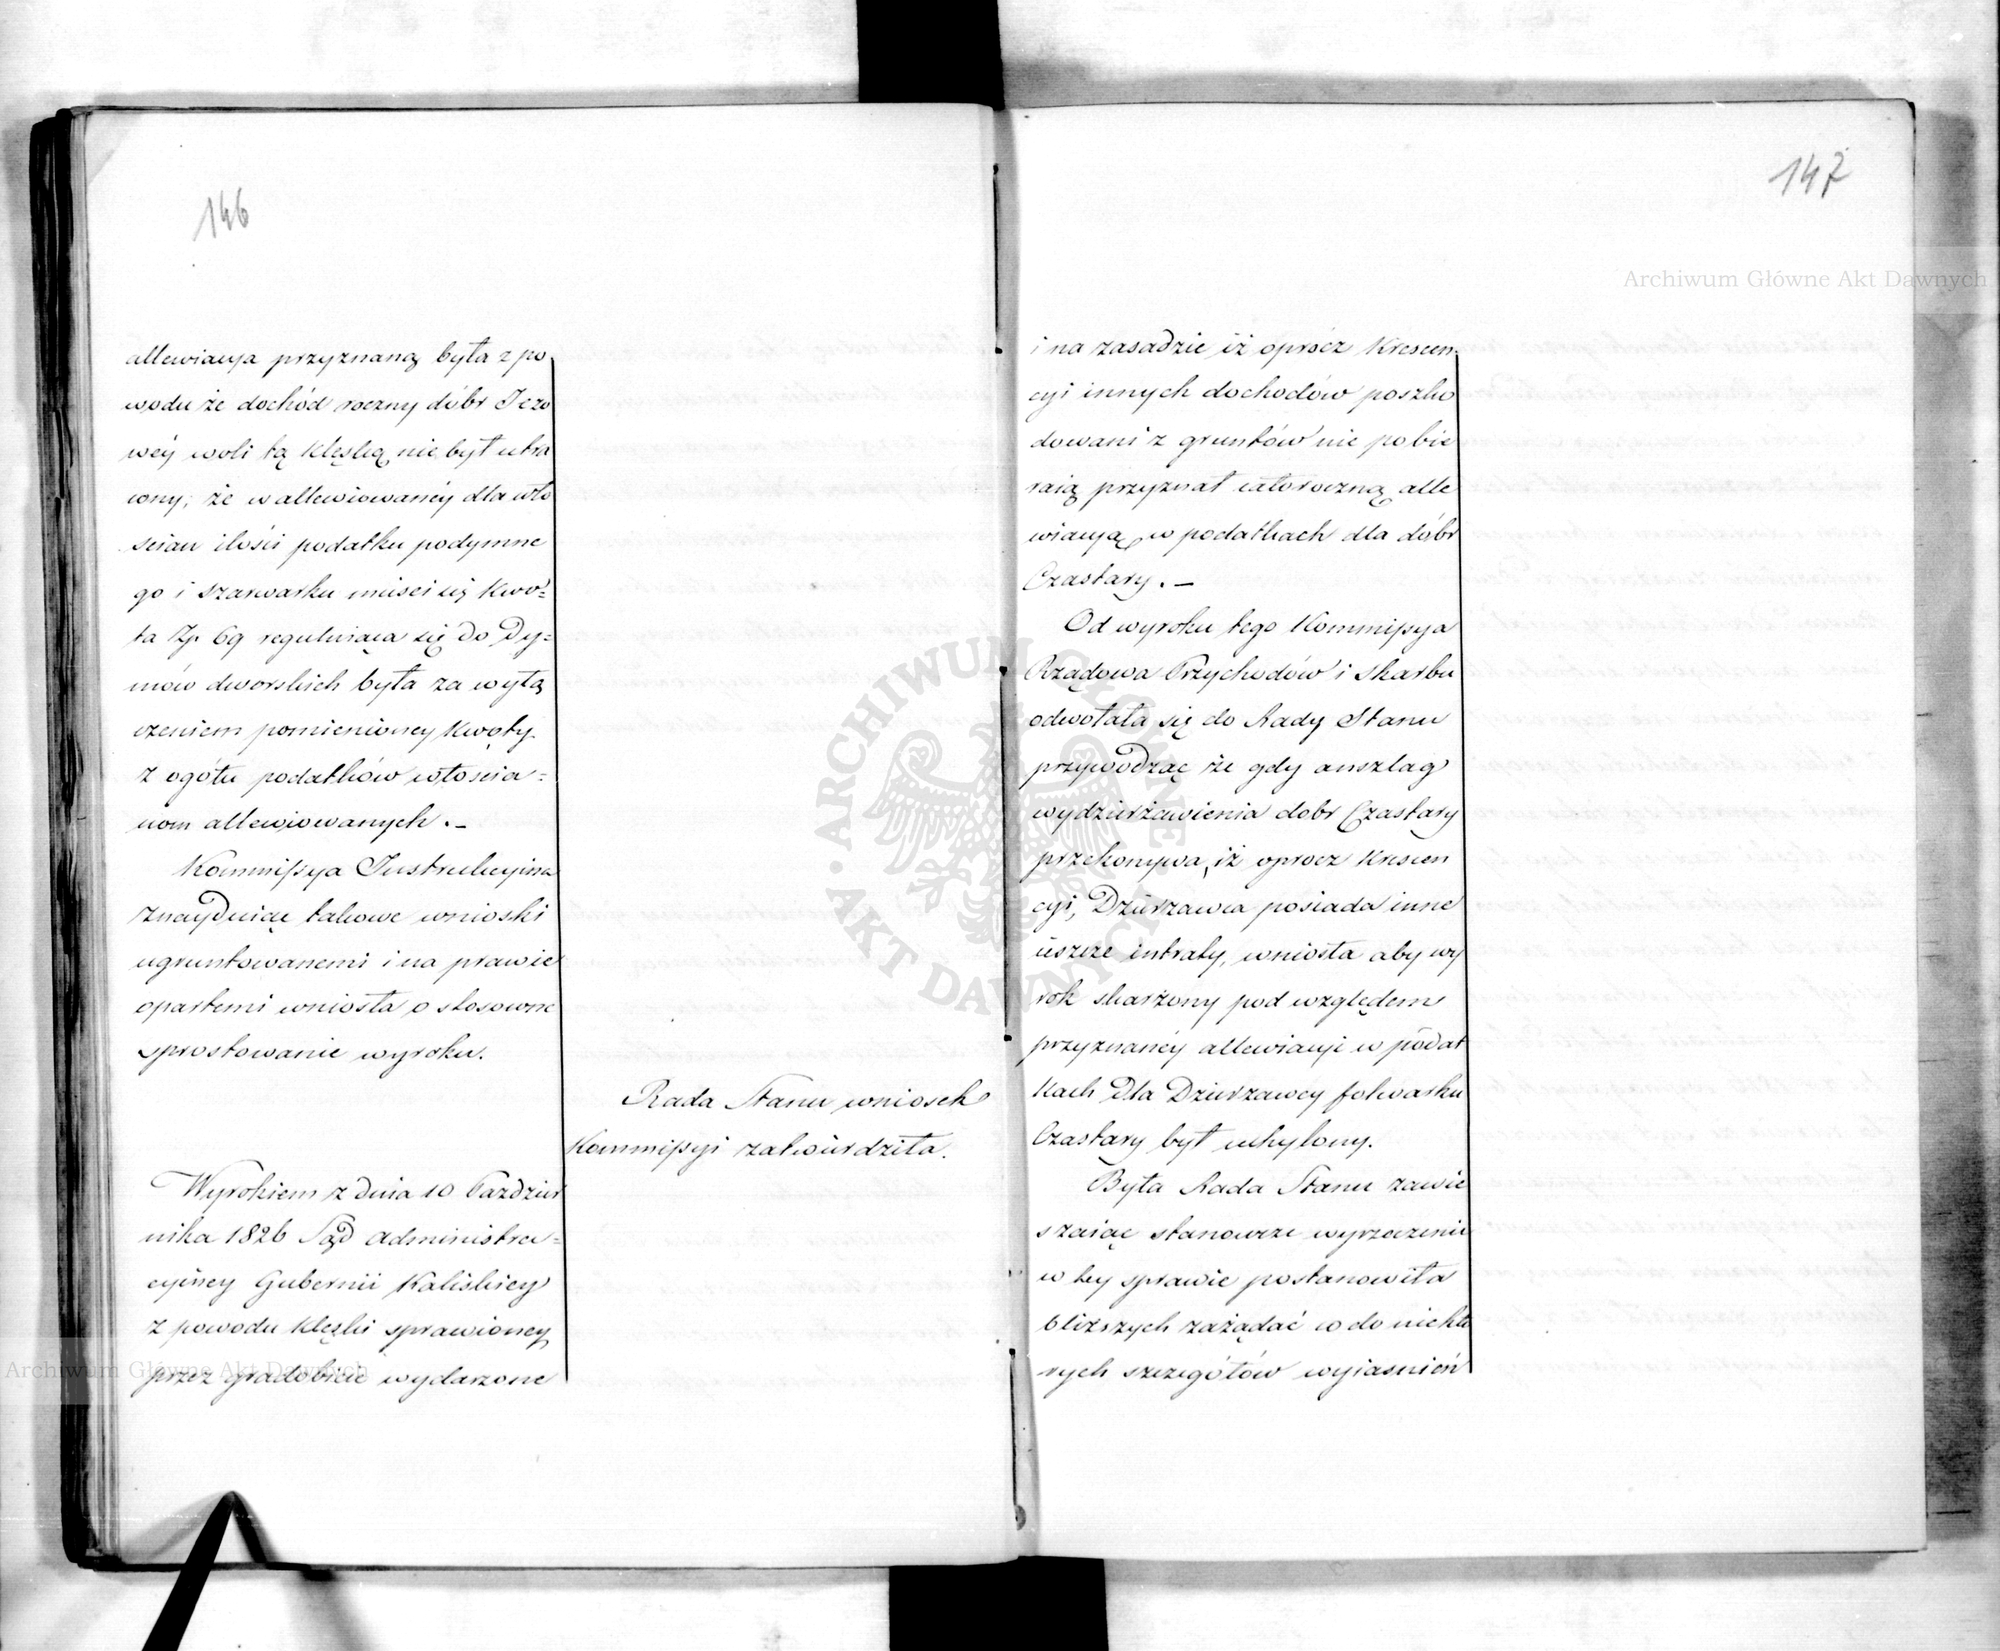 146
allewiacya przyznaną była z po
wodu że dochód roczny dóbr Jeżo
wéy woli tą klęską nie był utra
cony; że w allewiowanéy dla wło
ścian ilości podatku podymne
go i szarwarku mieści się kwo=
ta Zp. 69 reguluiąca się do Dy=
mów dworskich była za wyłą
czeniem pomienioney kwoty
z ogółu podatków włościa=
nom allewiowanych. –
Kommissya Instrukcyina
znayduiąc takowe wnioski
ugruntowanemi i na prawie
opartemi wniosła o stosowne
sprostowanie wyroku.
Rada Stanu wniosek
Kommissyi zatwierdziła.
Wyrokiem z dnia 10 Paździer
nika 1826 Sąd Administra=
cyiney Gubernii Kaliskiey
z powodu klęski sprawioney
przez gradobicie wydarzone
147
i na zasadzie iż oprócz Krescen
cyi innych dochodów poszko
dowani z gruntów nie pobie
raią przyznał całoroczną alle
wiacyą w podatkach dla dóbr
Czastary. –
Od wyroku tego Kommissya
Rządowa Przychodów i Skarbu
odwołała się do Rady Stanu
przywodząc że gdy anszlag
wydzierżawienia dobr Czastary
przekonywa, iż oprocz Krescen
cyi, Dzierzawca posiada inne
ieszcze intraty, wniosła aby wy
rok skarżony pod względem
przyznanéy allewiacyi w podat
kach dla Dzierzawcy folwarku
Czastary był uchylony.
Była Rada Stanu zawie
szaiąc stanowcze wyrzeczenie
w tey sprawie postanowiła
bliższych zażądać co do niektó
rych szczegółów wyiaśnień
Archiwum Główne Akt Dawnych
Archiwum Główne Akt Dawnych
ARCHIWUM GŁÓWNE AKT DAWNYCH